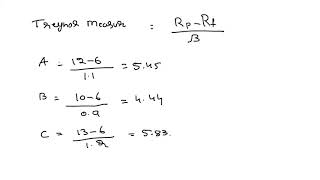 Treynor measur = Rp-Rf / β
A = 12-6 / 1.1 = 5.45
B = 10-6 / 0.9 = 4.44
C = 13-6 / 1.2 = 5.83.